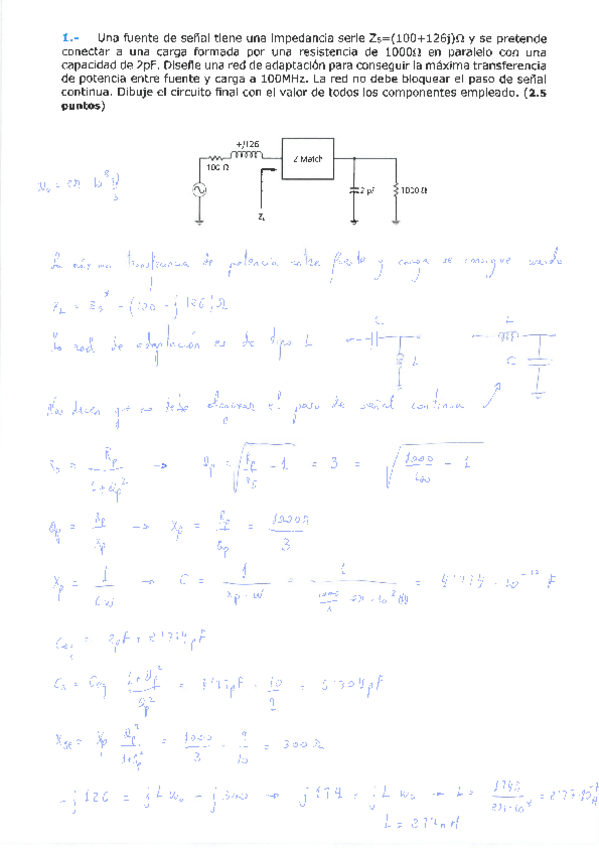 1.- Una fuente de señal tiene una impedancia serie Zs=(100+126j)Ω y se pretende
conectar a una carga formada por una resistencia de 1000Ω en paralelo con una
capacidad de 2pF. Diseñe una red de adaptación para conseguir la máxima transferencia
de potencia entre fuente y carga a 100MHz. La red no debe bloquear el paso de señal
continua. Dibuje el circuito final con el valor de todos los componentes empleado. (2.5
puntos)
+j126
100 Ω
Z Match
2 pF
1000 Ω
ZL
La máxima transferencia de potencia entre fuente y carga se consigue cuando
ZL = Zs* = (100 - j 126) Ω
La red de adaptación es de tipo L
C
L
L
C
Nos dicen que no debe bloquear el paso de señal continua
rs = Rp / (1 + Qp²) → Qp = √(Rp/rs - 1) = 3 = √(1000/100 - 1)
Qp = Rp/Xp → Xp = Rp/Qp = 1000Ω/3
Xp = 1/(Cω) → C = 1/(Xp·ω)
Ceq = 2pF +
Cs = Ceq (1+Qp²)/Qp² = 10/9
Xse = Xp Qp²/(1+Qp²) = 1000/3 · 9/10 = 300Ω
-j126 = jLω₀ - j300 → j174 = jLω₀ → L =
L = 277nH